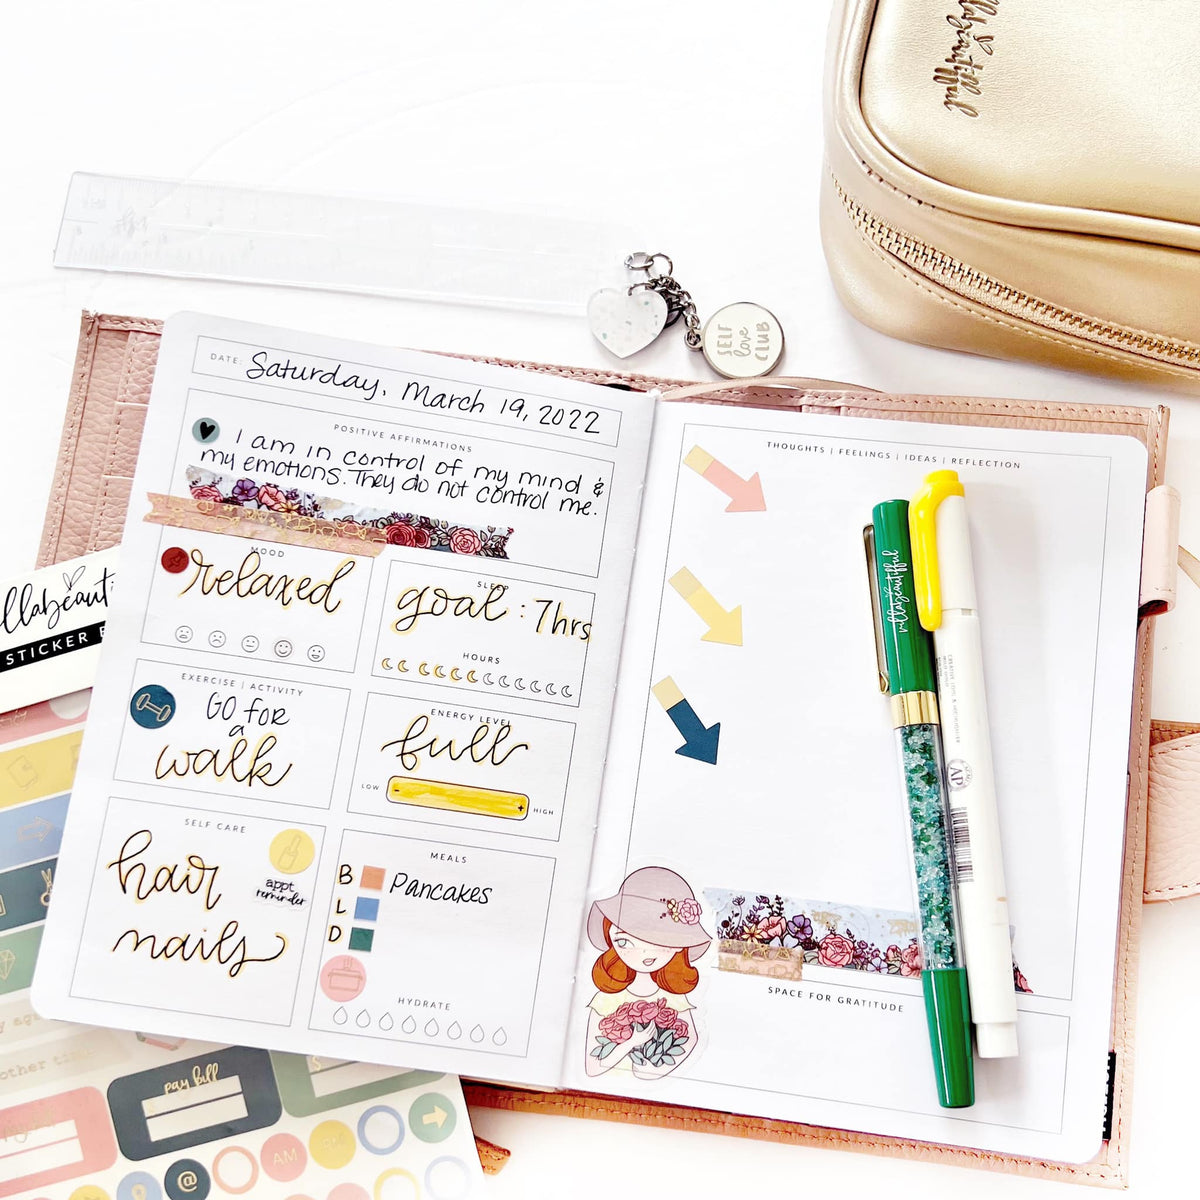 villabeautifful
SELF
love
CLUB
DATE: Saturday, March 19, 2022
POSITIVE AFFIRMATIONS
I am in control of my mind &
my emotions. They do not control me.
MOOD
relaxed
SLEEP
goal : 7hrs
HOURS
EXERCISE | ACTIVITY
GO FOR
a
walk
ENERGY LEVEL
full
LOW - + HIGH
SELF CARE
hair
appt
reminder
nails
MEALS
B Pancakes
L
D
HYDRATE
THOUGHTS | FEELINGS | IDEAS | REFLECTION
villabeautifful
AP
SPACE FOR GRATITUDE
illabeauti
STICKER B
other time
pay bill
@
AM